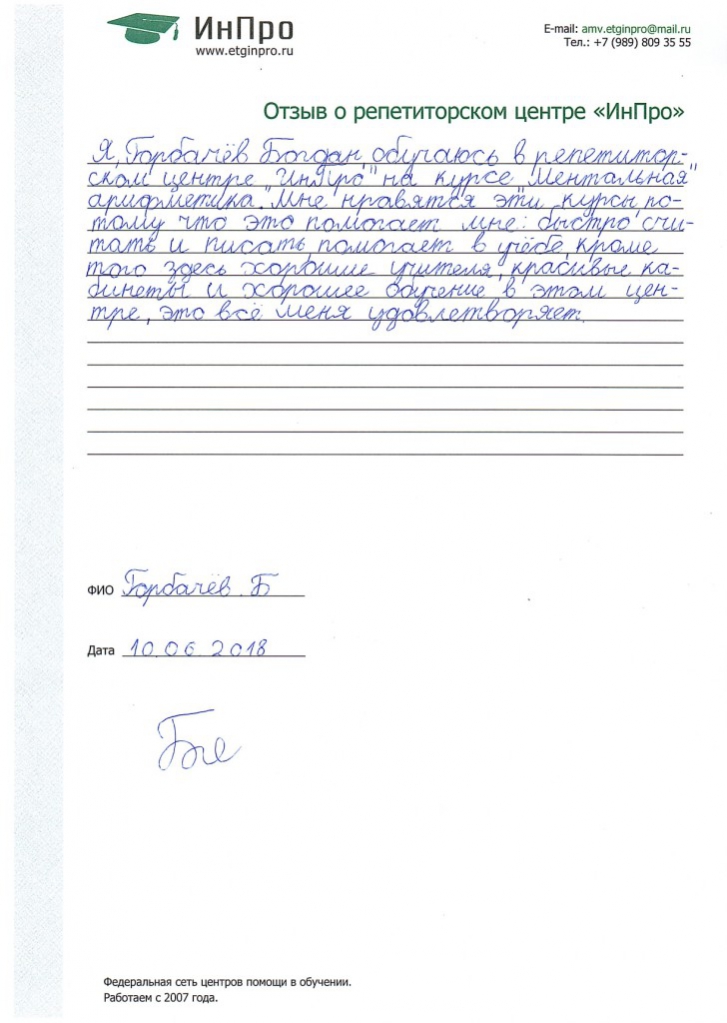 ИнПро
www.etginpro.ru
E-mail: amv.etginpro@mail.ru
Тел.: +7 (989) 809 35 55
Отзыв о репетиторском центре «ИнПро»
Я, Горбачёв Богдан, обучаюсь в репетитор-
ском центре "ИнПро" на курсе "Ментальная
арифметика". Мне нравятся эти курсы по-
тому что это помогает мне: быстро счи-
тать и писать, помогает в учёбе, кроме
того здесь хорошие учителя, красивые ка-
бинеты и хорошее обучение в этом цен-
тре, это всё меня удовлетворяет.
ФИО Горбачёв Б
Дата 10.06.2018
Федеральная сеть центров помощи в обучении.
Работаем с 2007 года.